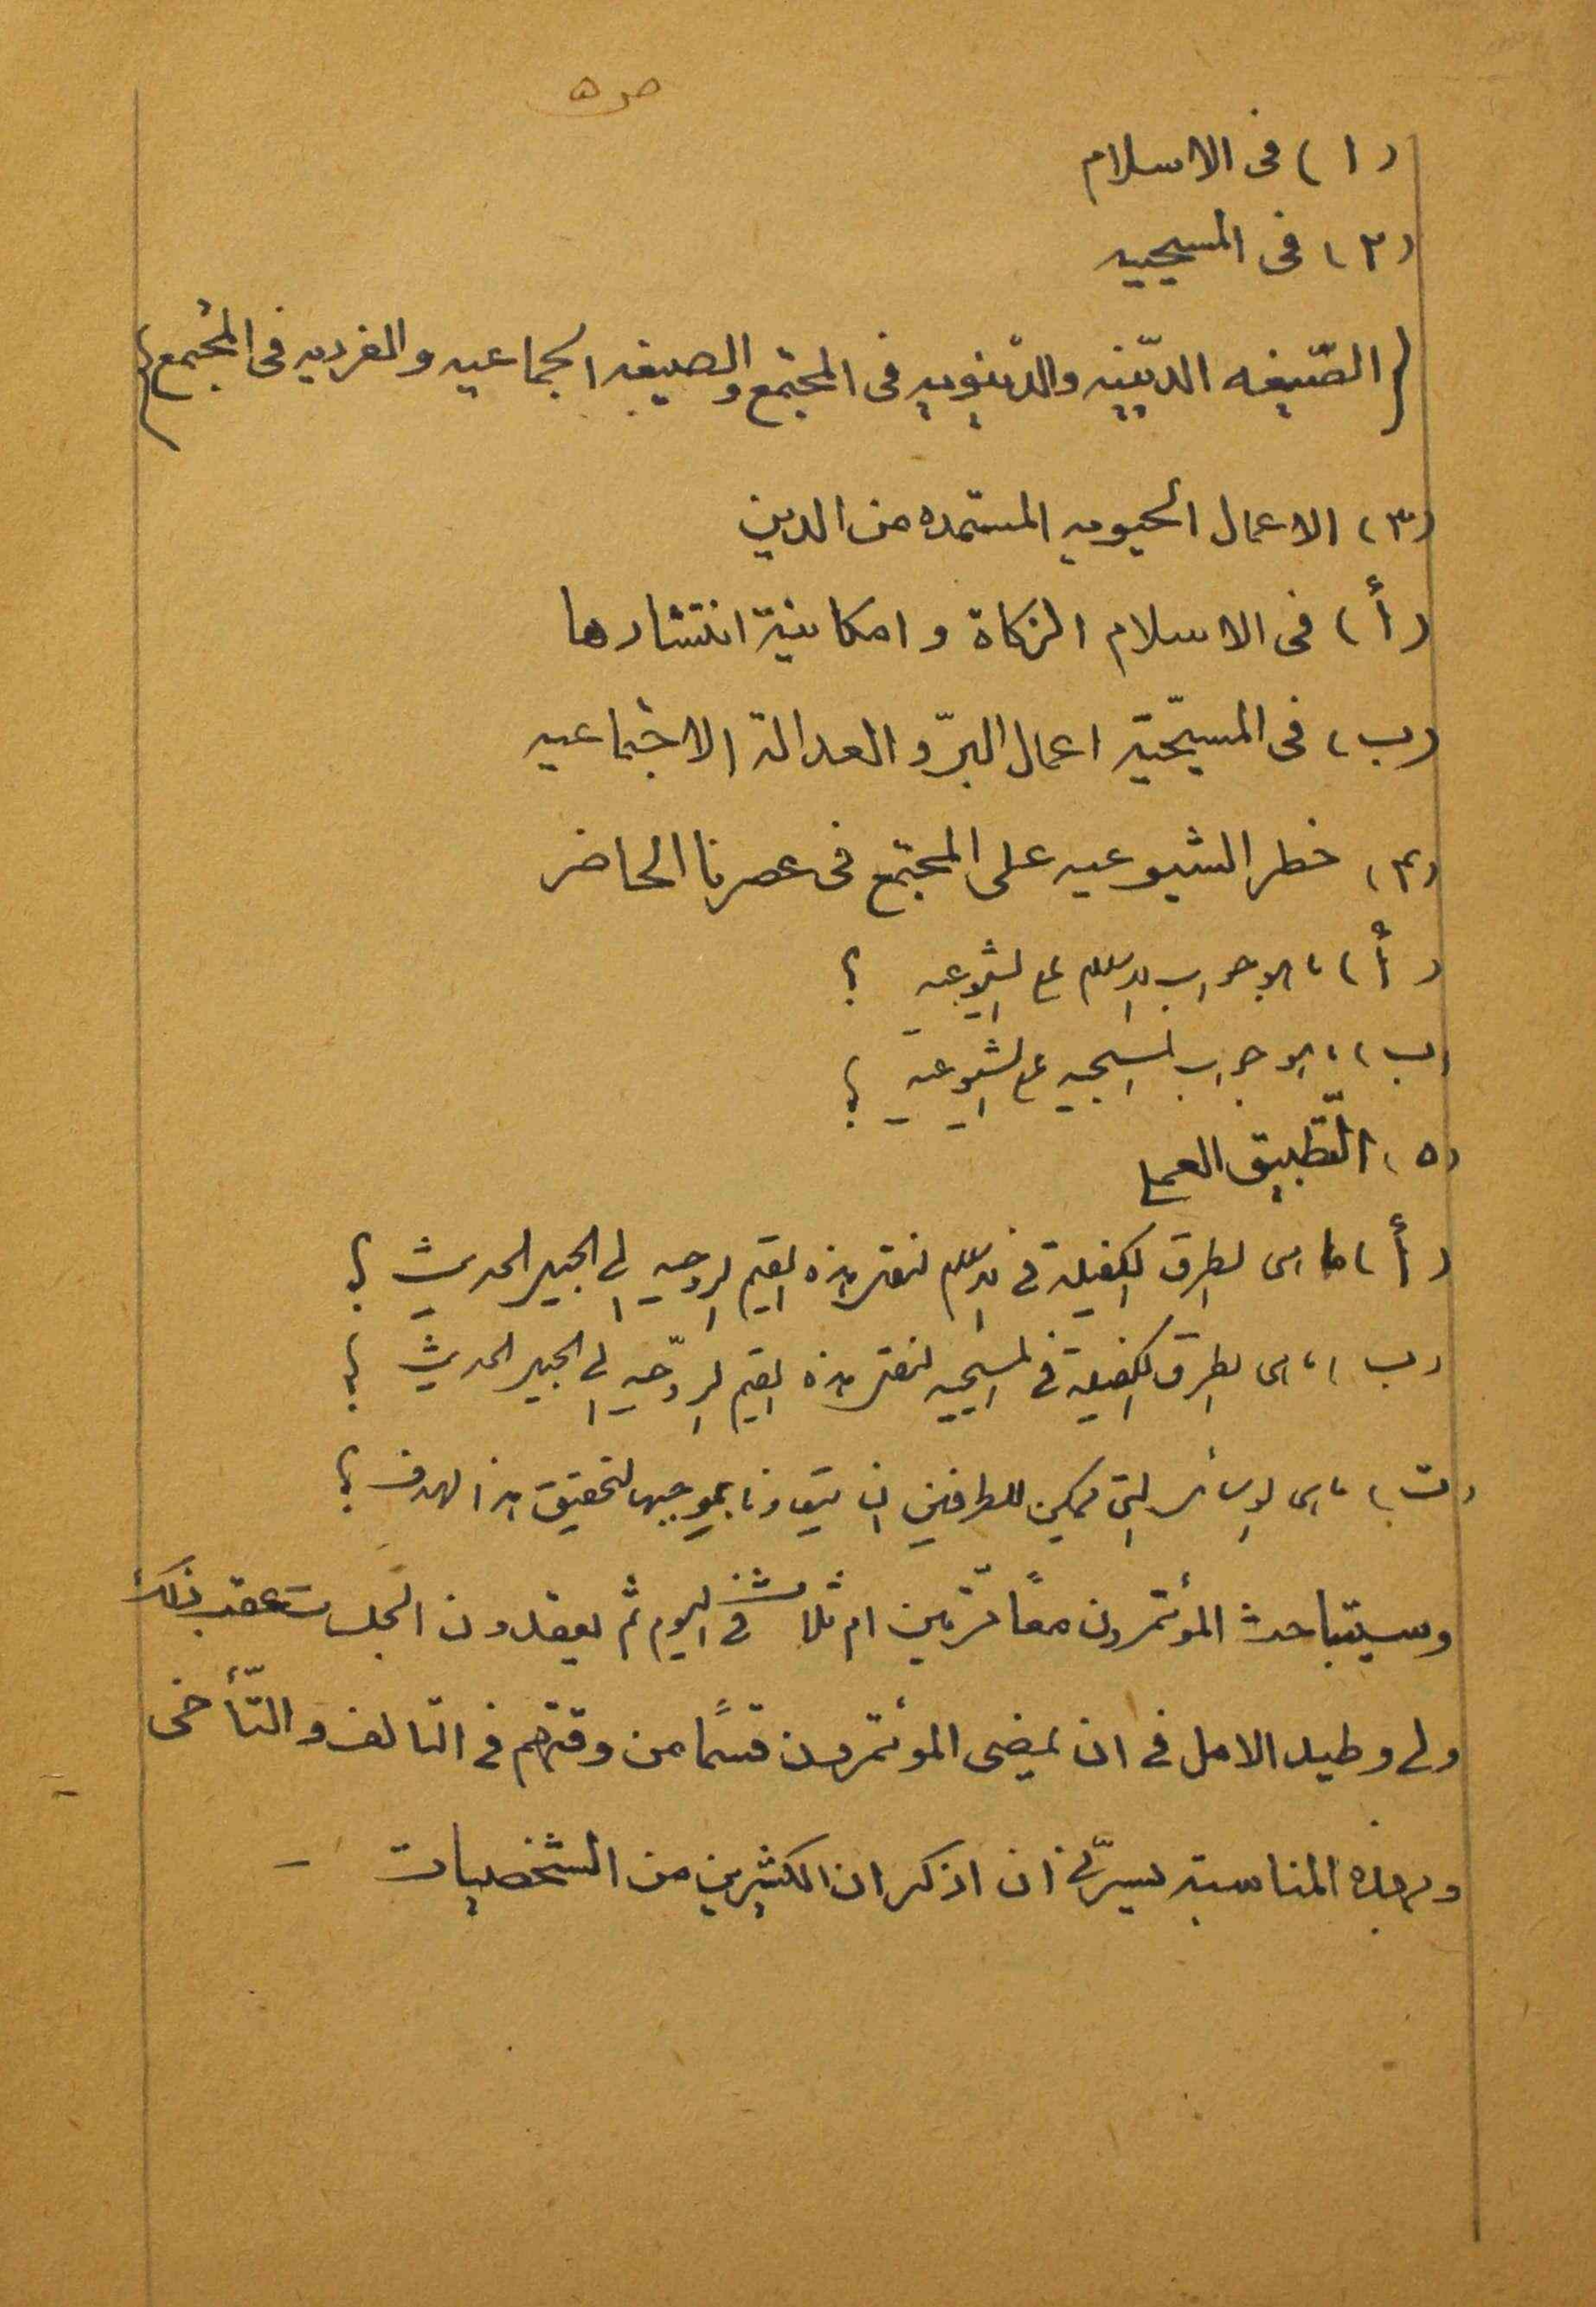 ص ٥
(١) فى الاسلام
(٢) فى المسيحيه
{الصّيغه الدّينيه والدّنيويه فى المجتمع والصيغه الجماعيه والفرديه فى المجتمع}
(٣) الاعمال الحيويه المستمده من الدين
(أ) فى الاسلام الزكاة و امكانية انتشارها
(ب) فى المسيحّية اعمال البرّ و العدالة الاجتماعيه
(٤) خطر الشيوعيه على المجتمع فى عصرنا الحاضر
(أ) ما هو جواب الاسلام على الشيوعيه ؟
(ب) ما هو جواب المسيحيه على الشيوعيه ؟
(٥) التّطبيق العملى
(أ) ما هى الطرق الكفيلة فى الاسلام لنقل هذه القيم الروحيه الى الجيل الحديث ؟
(ب) ما هى الطرق الكفيلة فى المسيحيه لنقل هذه القيم الروّحيه الى الجيل الحديث ؟
(ت) ما هى الوسائل التى يمكن للطرفين ان يتعاونا بموجبها لتحقيق هذا الهدف ؟
وسيتباحث المؤتمرون معاً مرّتين ام ثلاث فى اليوم ثم يعقدون الجلسات عقب ذلك
ولى وطيد الامل فى ان يمضى المؤتمرون قسمًا من وقتهم فى التالف و التّأخى
وبهذه المناسبة يسرّنى ان اذكر ان الكثيرين من الشخصيات –